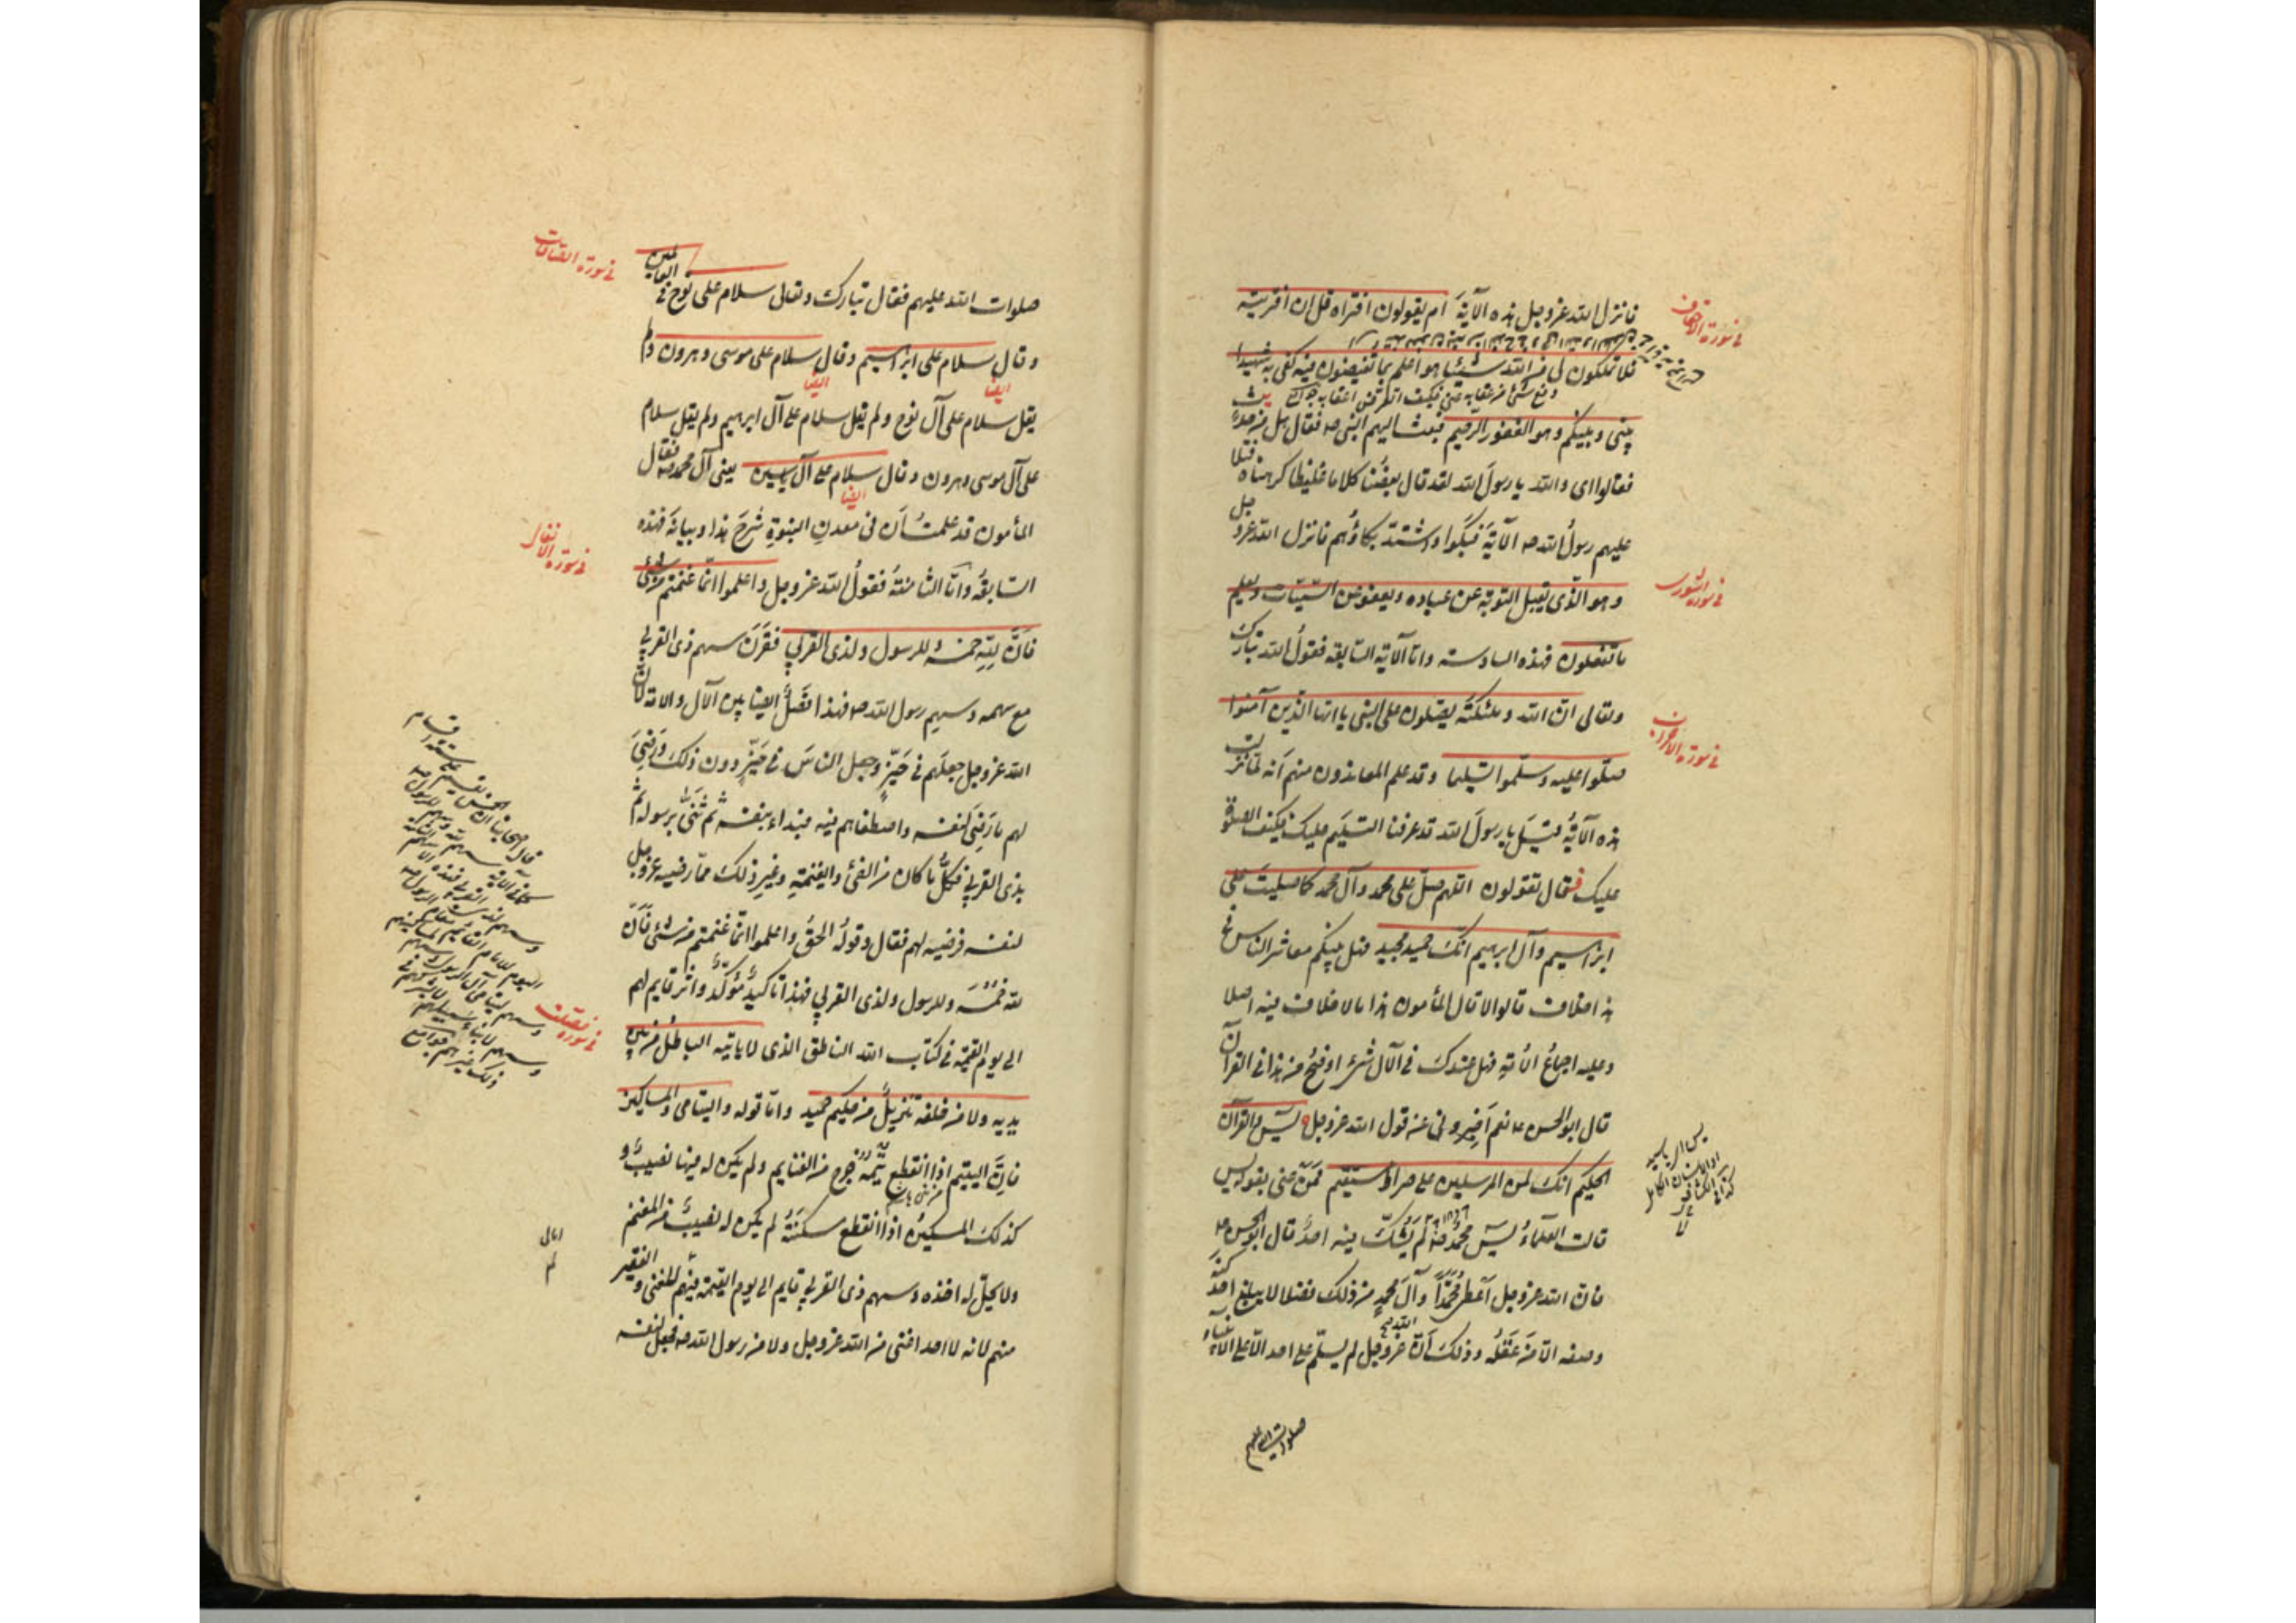 فانزل الله عزوجل هذه الآية ام يقولون افتراه قل ان افتريته
فلا تملكون لى من الله شيئا هو اعلم بما تفيضون فيه كفى به شهيدا
بينى وبينكم وهو الغفور الرحيم فبعث اليهم النبى صه فقال هل من حدث
فقالوا اى والله يا رسول الله لقد قال بعضنا كلاما غليظا كرهناه فتلا
عليهم رسول الله صه الآية فبكوا واشتد بكاؤهم فانزل الله عزو جل
وهو الذى يقبل التوبة عن عباده ويعفو عن السيئات ويعلم
ما تفعلون فهذه السادسة واما الآية السابعة فقول الله تبارك
وتعالى ان الله وملئكته يصلون على النبى يا ايها الذين آمنوا
صلوا عليه وسلموا تسليما وقد علم المعاندون منهم انه لما نزلت
هذه الآية قيل يا رسول الله قد عرفنا التسليم عليك فكيف الصلوة
عليك فقال تقولون اللهم صل على محمد وآل محمد كما صليت على
ابراهيم وآل ابرهيم انك حميد مجيد فهل بينكم معاشر الناس فى
هذا خلاف قالوا لا قال المأمون هذا ما لا خلاف فيه اصلا
وعليه اجماع الامة فهل عندك فى الآل شىء اوضح من هذا فى القرآن
قال ابوالحسن ع نعم اخبرونى عن قول الله عزوجل يس والقرآن
الحكيم انك لمن المرسلين على صراط مستقيم فمن عنى بقوله يس
قالت العلماء يس محمد صه لم يشك فيه احد قال ابوالحسن ع
فان الله عزوجل اعطى محمدا وآل محمد من ذلك فضلا لا يبلغ احد كنه
وصفه الا من عقله وذلك ان الله عزوجل لم يسلم على احد الا على الانبياء
صلوات الله عليهم
فى سورة الاحقاف
فى سورة الشورى
فى سورة الاحزاب
صلوات الله عليهم فقال تبارك وتعالى سلام على نوح فى العالمين
وقال سلام على ابراهيم وقال سلام على موسى وهرون ولم
ايضا ايضا
يقل سلام على آل نوح ولم يقل سلام على آل ابرهيم ولم يقل سلام
على آل موسى وهرون وقال سلام على آل يسين يعنى آل محمد صه فقال
ايضا
المأمون قد علمت ان فى معدن النبوة شرح هذا وبيانه فهذه
السابعة واما الثامنة فقول الله عزوجل واعلموا انما غنمتم من شئ
فان لله خمسه وللرسول ولذى القربى فقرن سهم ذى القربى
مع سهمه وسهم رسول الله صه فهذا فضل ايضا بين الآل والامة لان
الله عزوجل جعلهم فى حيز وجعل الناس فى حيز دون ذلك ورضى
لهم ما رضى لنفسه واصطفاهم فيه فبداء بنفسه ثم ثنى برسوله ثم
بذى القربى فكل ما كان من الفئ والغنيمة وغير ذلك مما رضيه عزوجل
لنفسه فرضيه لهم فقال وقوله الحق واعلموا انما غنمتم من شئ فان
لله خمسه وللرسول ولذى القربى فهذا تاكيد مؤكد واثر قايم لهم
الى يوم القيمة فى كتاب الله الناطق الذى لا ياتيه الباطل من بين
يديه ولا من خلفه تنزيل من حكيم حميد واما قوله واليتامى والمساكين
فان اليتيم اذا انقطع يتمه خرج من الغنايم ولم يكن له فيها نصيب و
كذلك المسكين اذا انقطع مسكنته لم يكن له نصيب من المغنم
ولا يحل له اخذه وسهم ذى القربى قايم الى يوم القيمة فيهم للغنى والفقير
منهم لانه لا احد اغنى من الله عزوجل ولا من رسول الله صه فجعل لنفسه
فى سورة الصافات
فى سورة الانفال
فى سورة فصلت